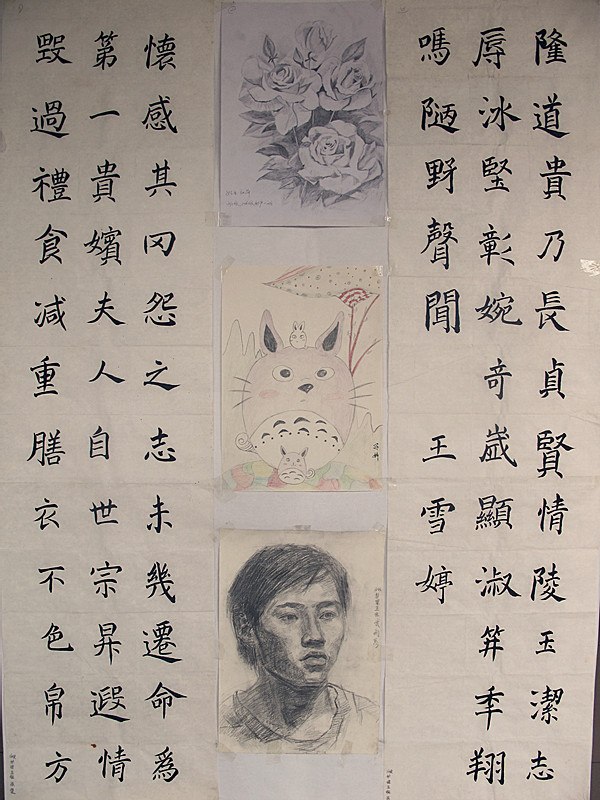 隆道貴乃長貞賢情陵玉潔志
辱冰堅彰婉竒歲顯淑筓季翔
嗎陋野聲聞 王雪婷
懷感其冈怨之志未幾遷命爲
第一貴嬪夫人自世宗昇遐情
毀過禮食减重膳衣不色帛方